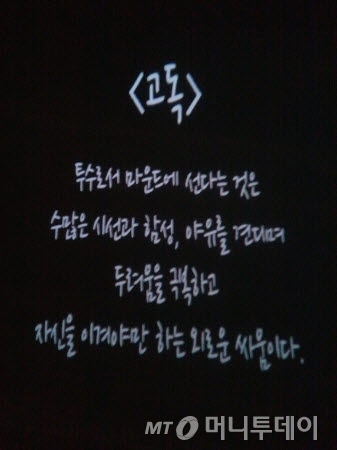 <고독>
투수로서 마운드에 선다는 것은
수많은 시선과 함성, 야유를 견디며
두려움을 극복하고
자신을 이겨야만 하는 외로운 싸움이다.
MT 머니투데이